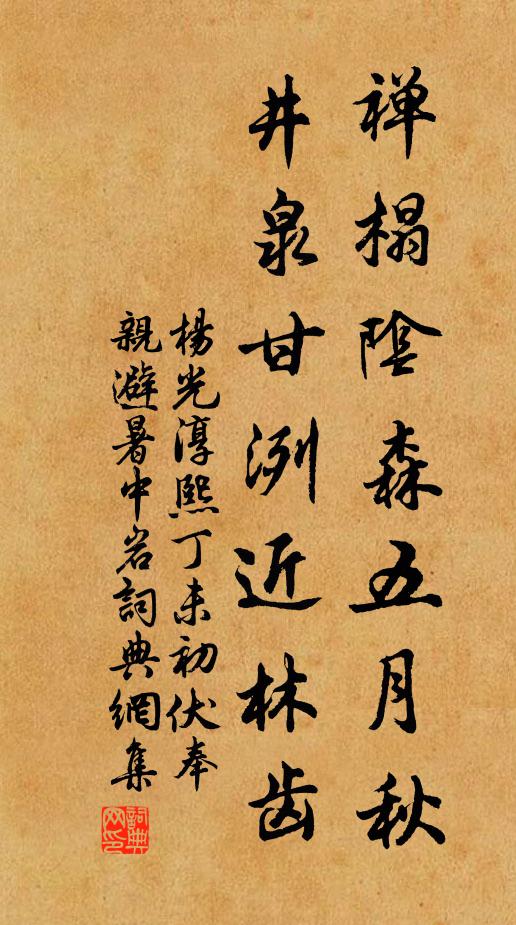 禅榻陰森五月秋
井泉甘洌近林齿
楊光淳熙丁未初伏奉
親避暑中岩詞典網集
詞典网印